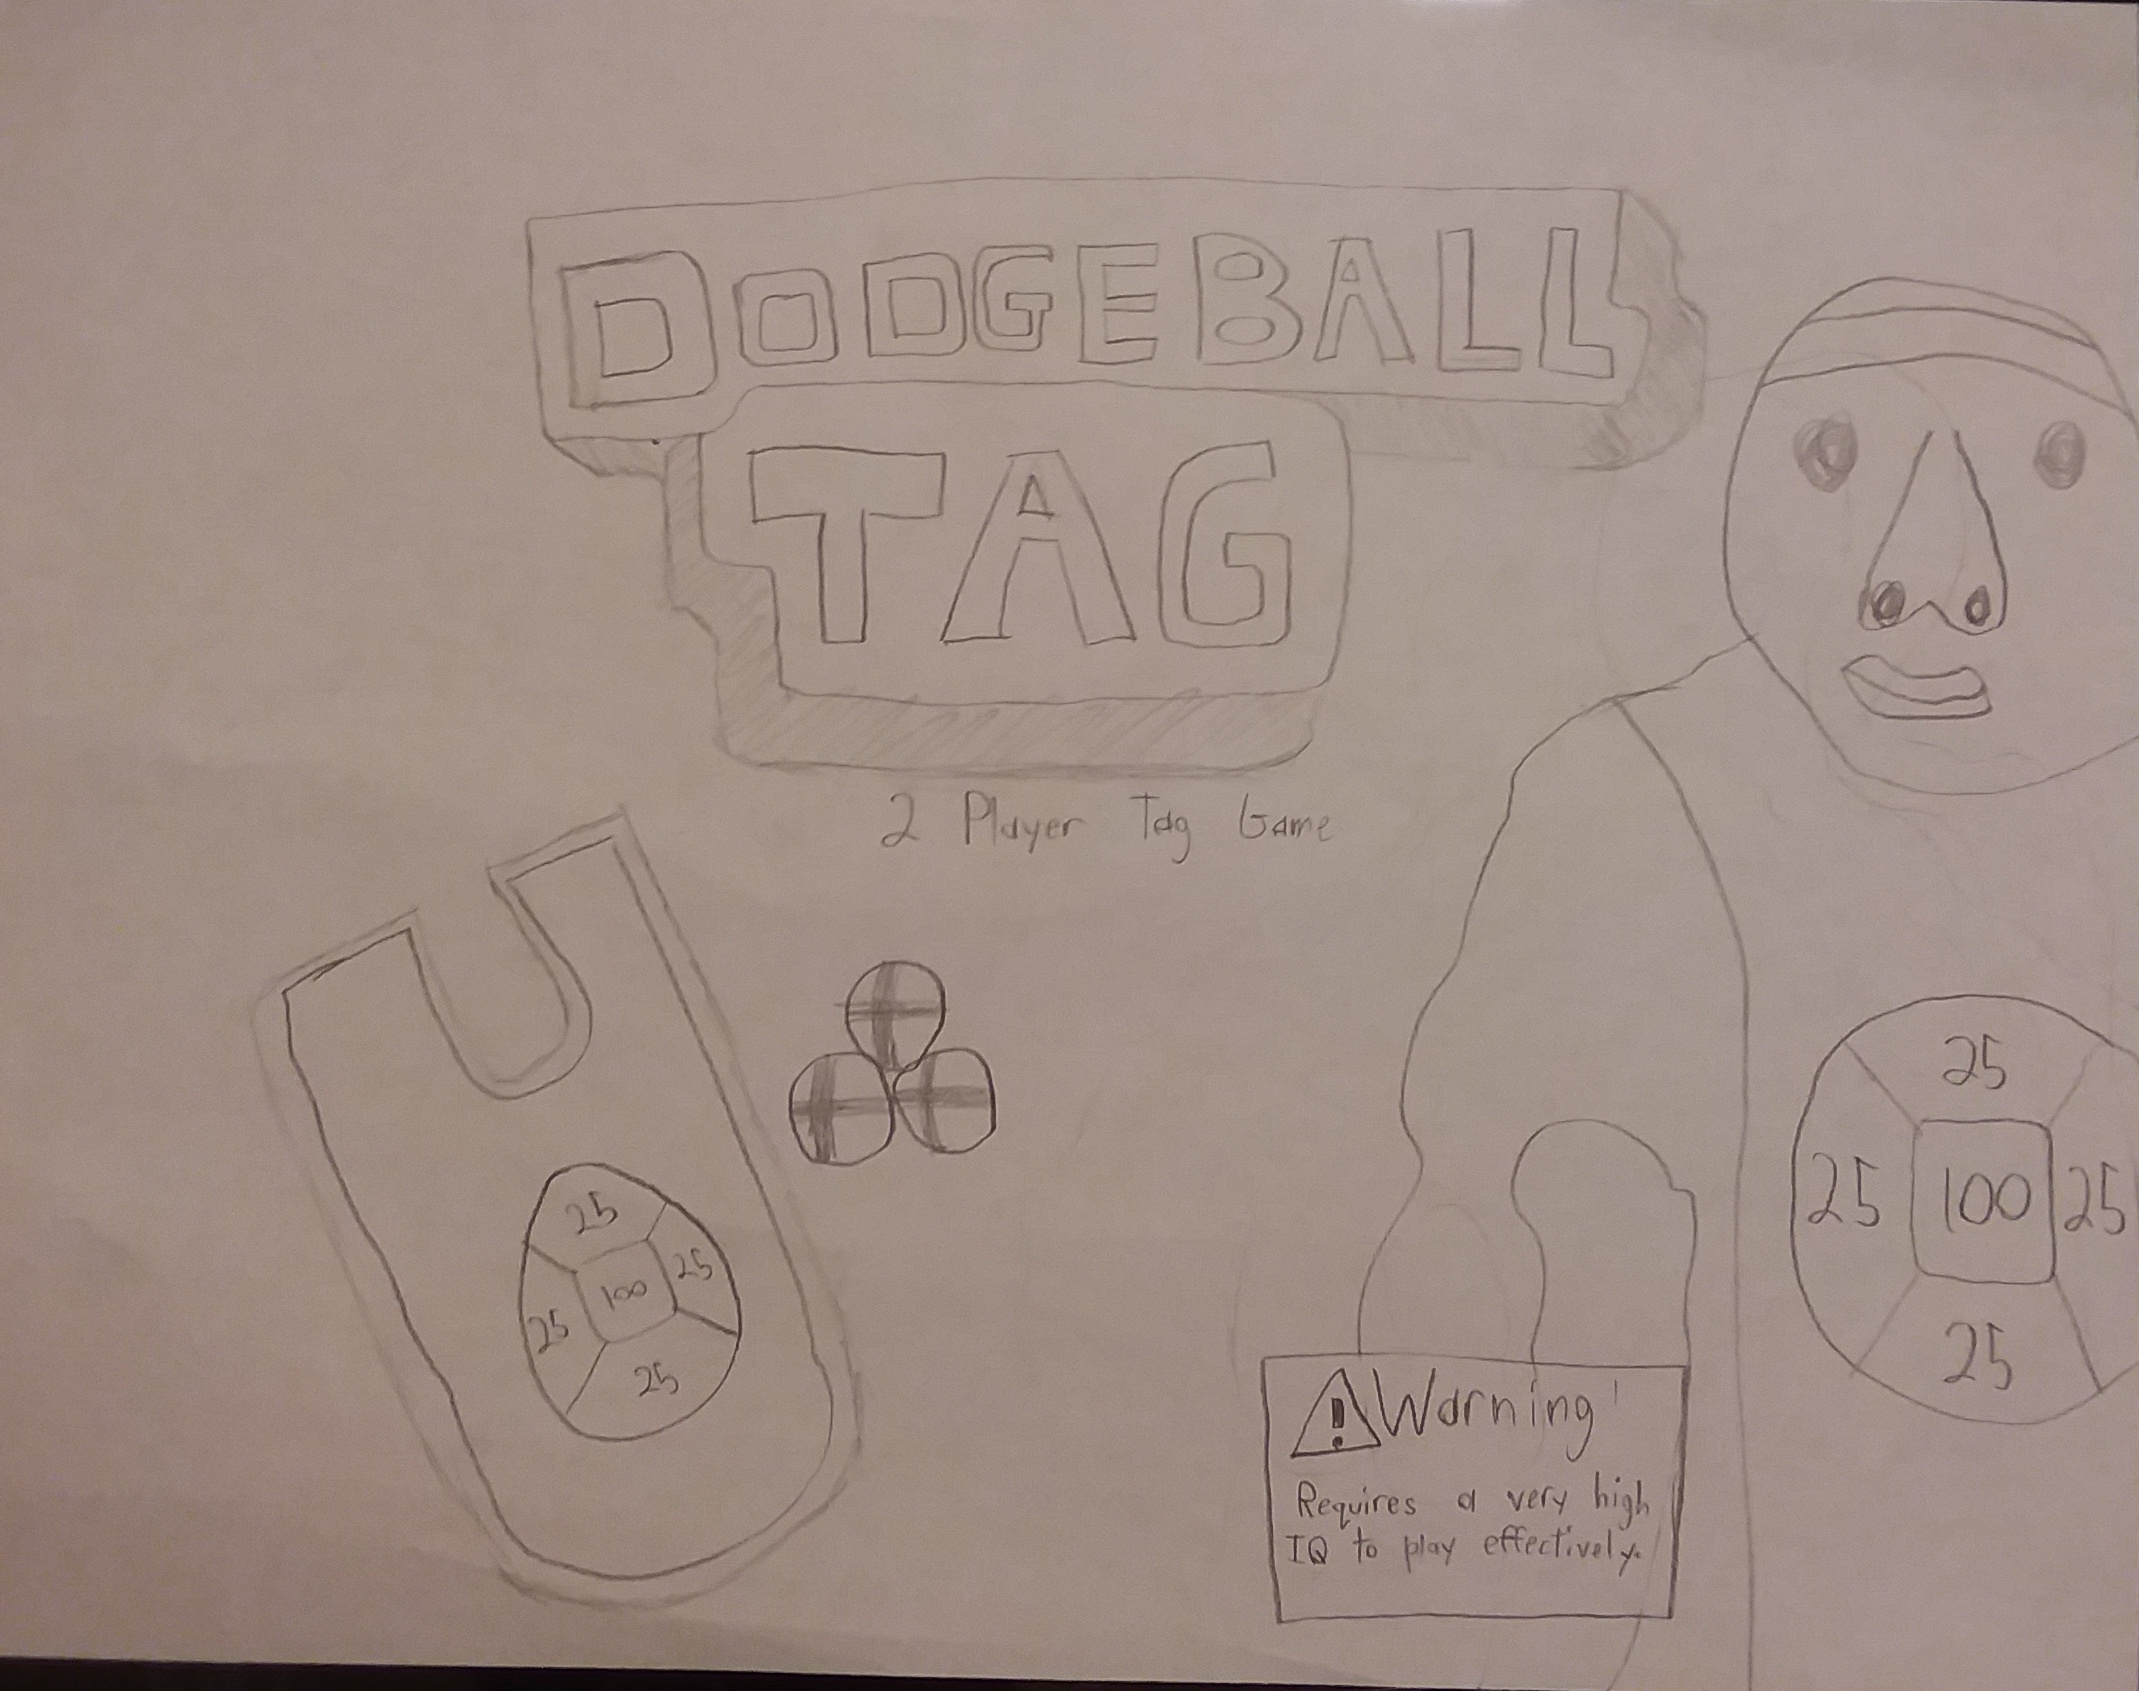 DODGEBALL
TAG
2 Player Tag Game
25
25
100
25
25
25
25
100
25
25
! Warning!
Requires a very high
IQ to play effectively.